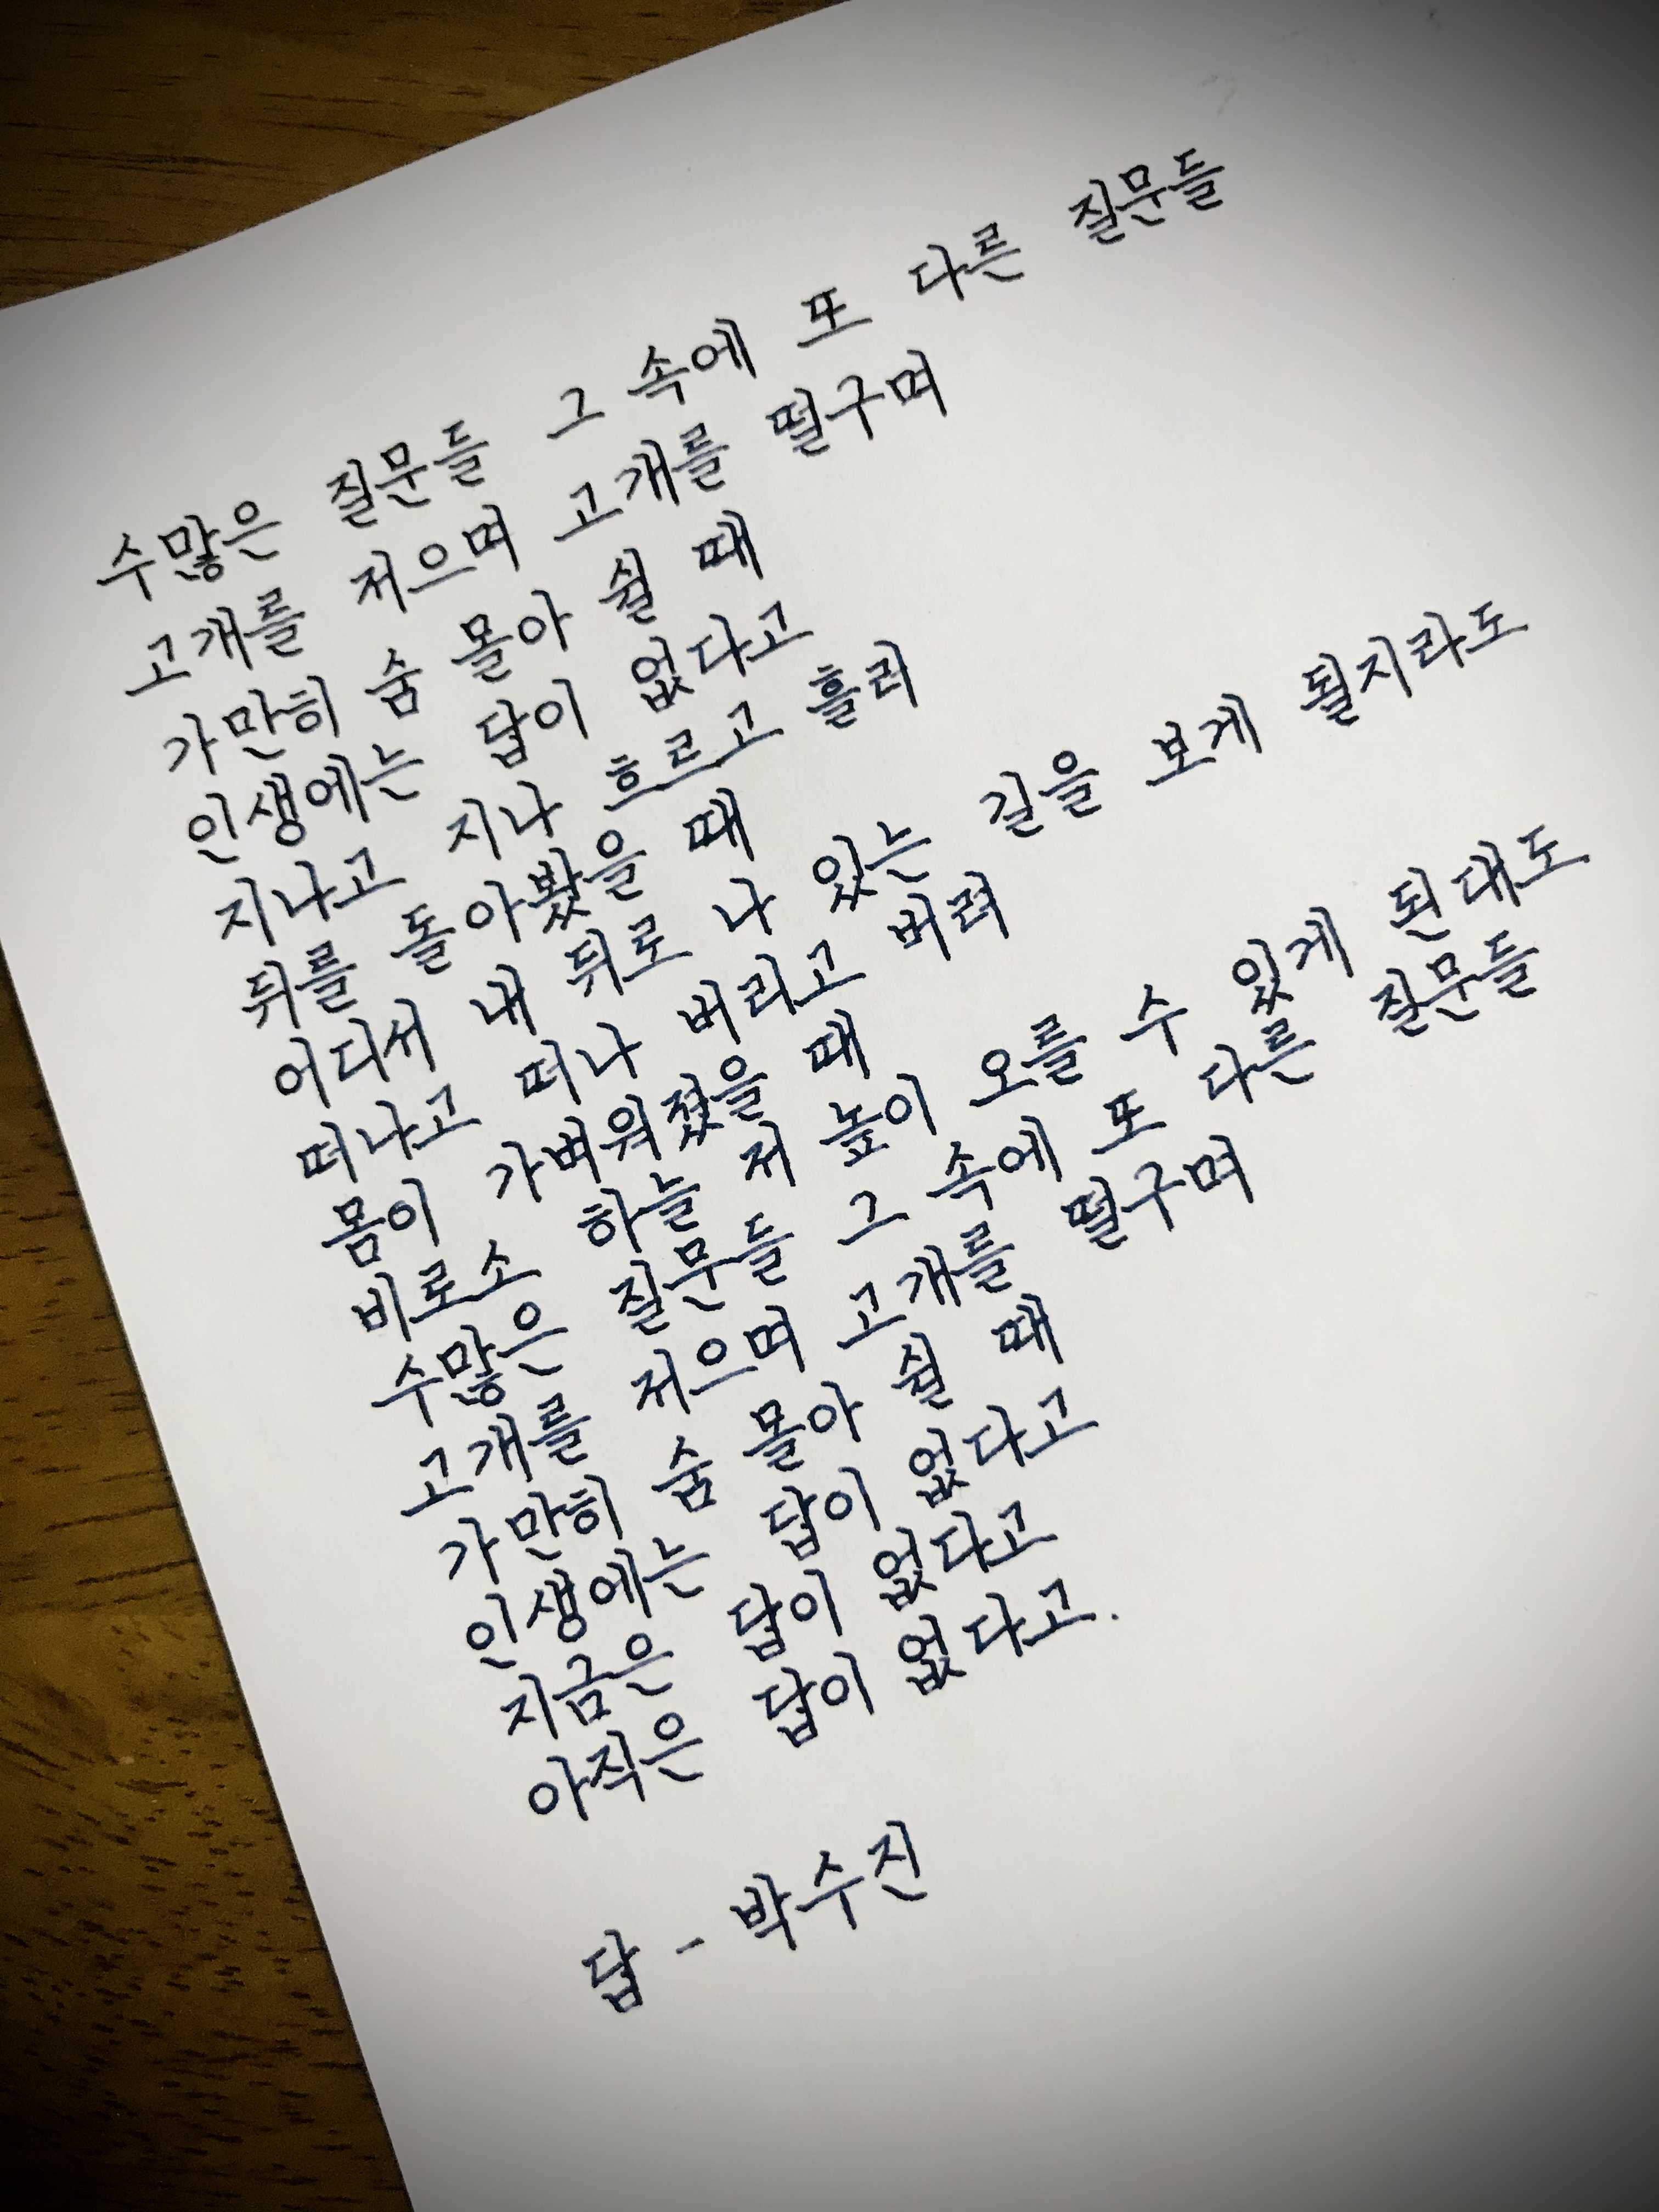 수많은 질문들 그 속에 또 다른 질문들
고개를 저으며 고개를 떨구며
가만히 숨 몰아 쉴 때
인생에는 답이 없다고
지나고 지나 흐르고 흘러
뒤를 돌아봤을 때
어디서 내 뒤로 나 있는 길을 보게 될지라도
떠나고 떠나 버리고 버려
몸이 가벼워졌을 때
비로소 하늘 저 높이 오를 수 있게 된대도
수많은 질문들 그 속에 또 다른 질문들
고개를 저으며 고개를 떨구며
가만히 숨 몰아 쉴 때
인생에는 답이 없다고
지금은 답이 없다고
아직은 답이 없다고.
답 - 박수진